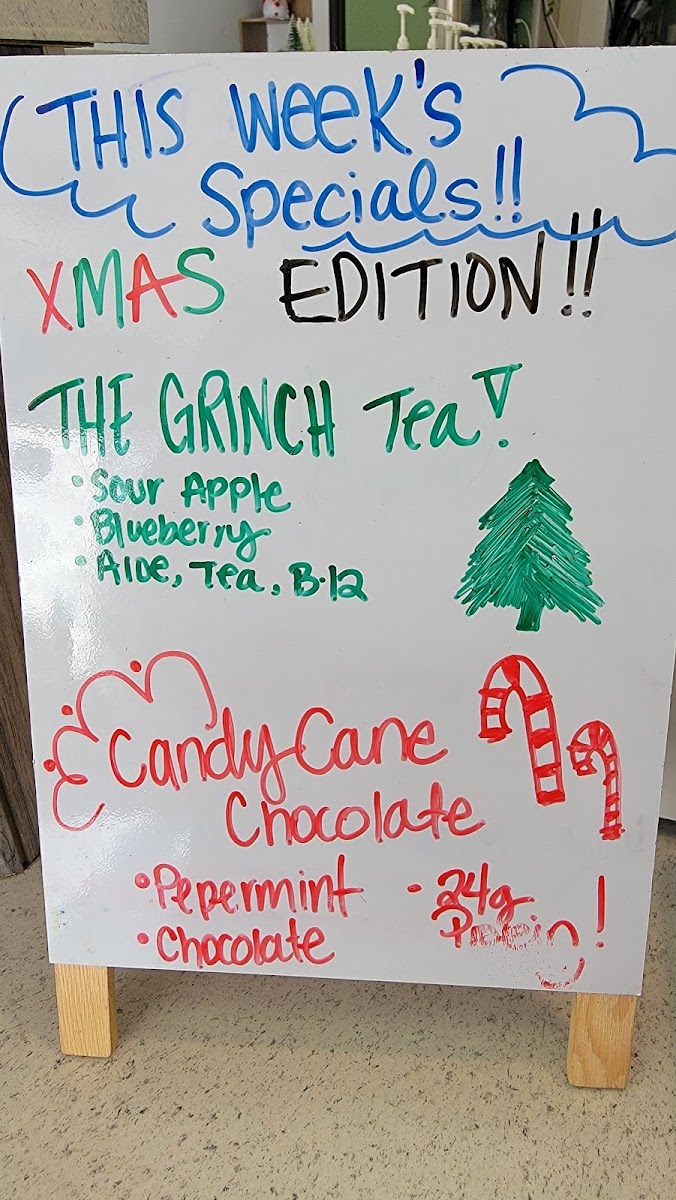 THIS WEEK'S
Specials!!
XMAS EDITION!!
THE GRINCH Tea!
• Sour Apple
• Blueberry
• Aloe, Tea, B-12
Candy Cane
Chocolate
• Pepermint
• Chocolate
• 24g
!